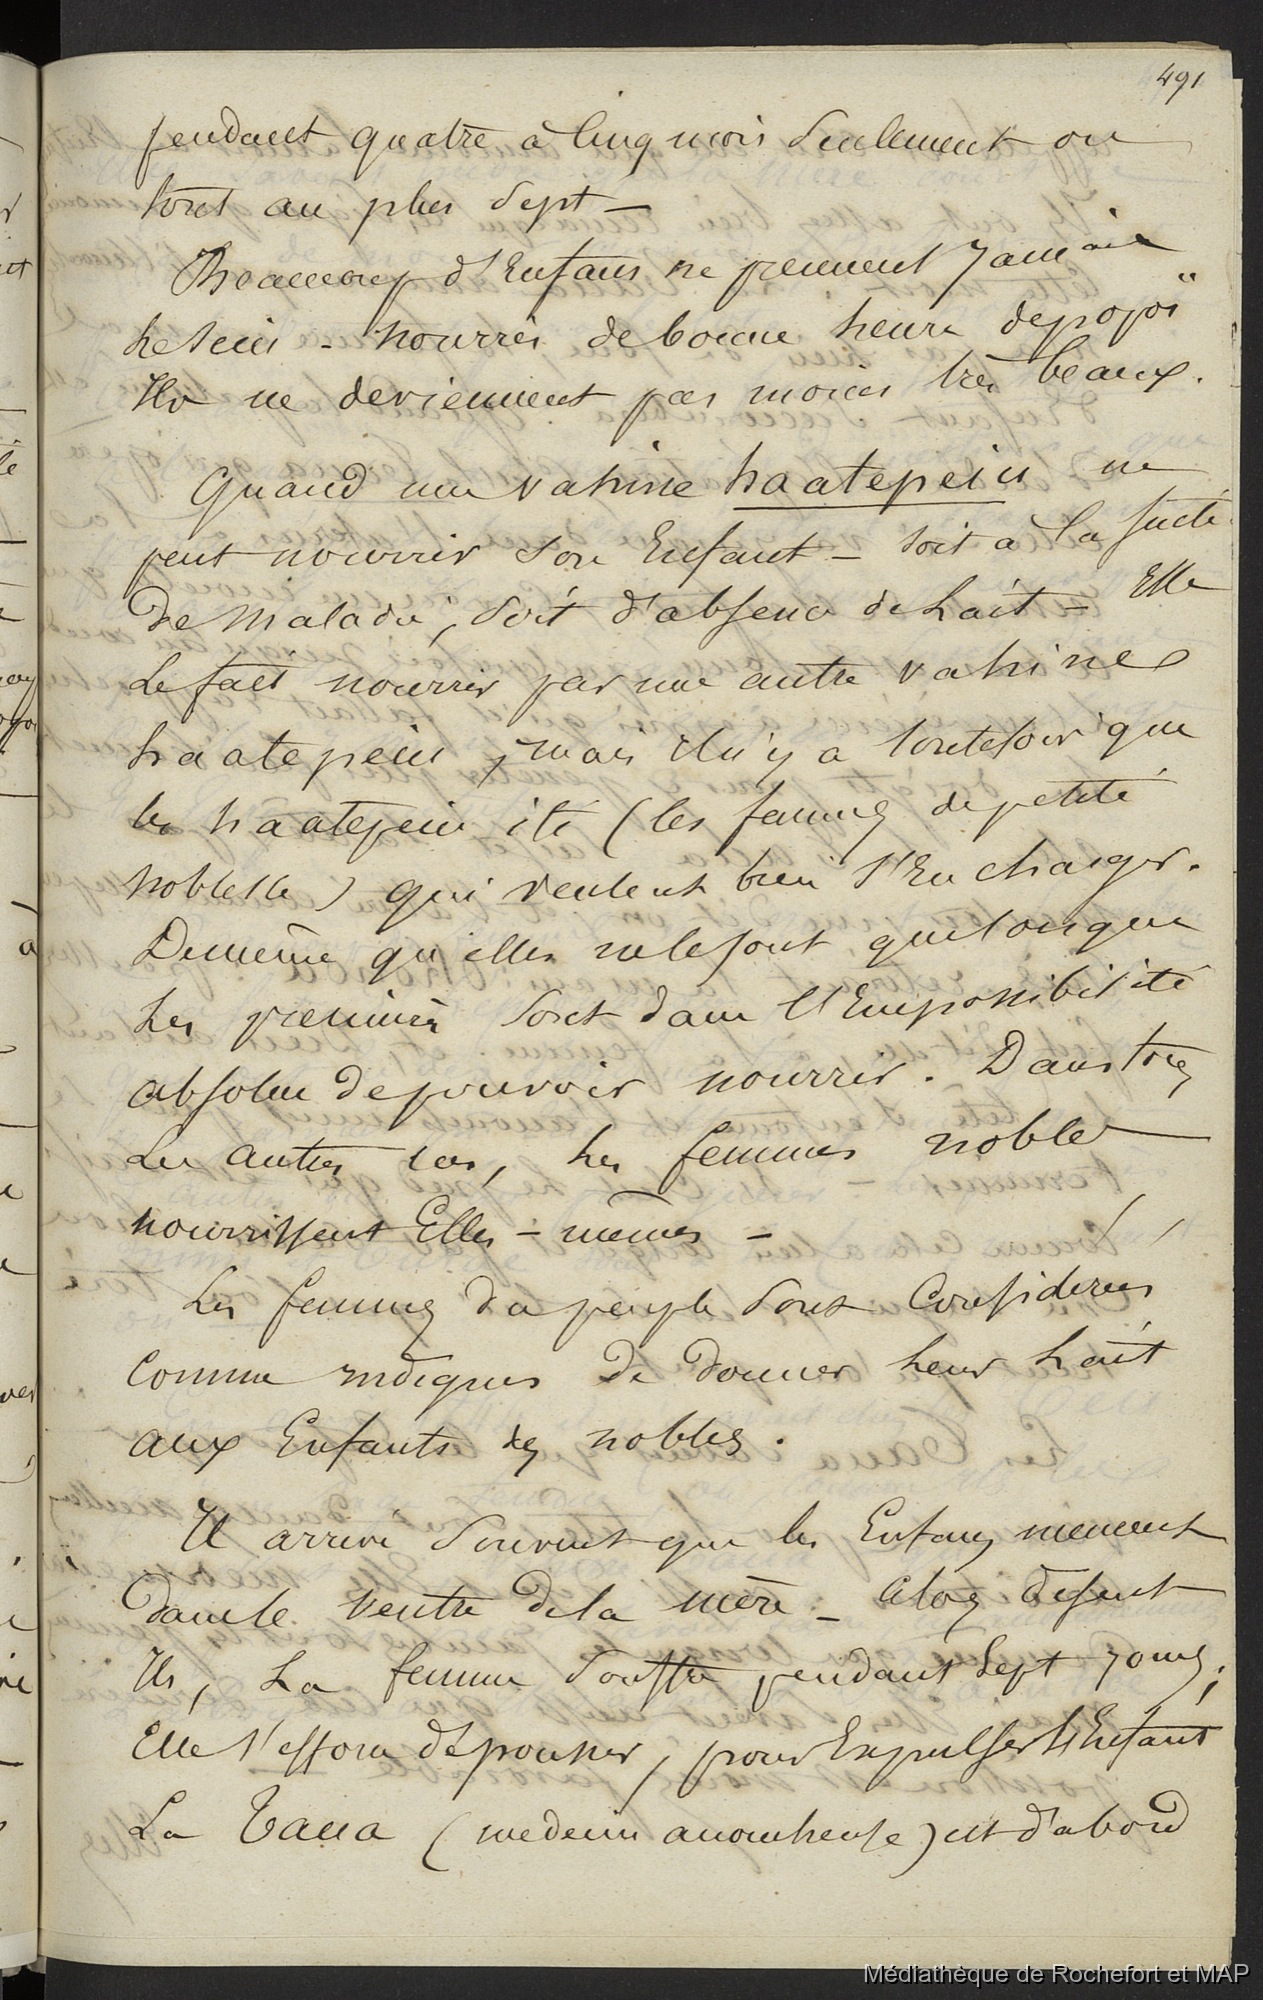 491
pendant quatre à Cinq mois Seulement ou
tout au plus Sept —
Beaucoup d'Enfans ne prennent Jamais
le sein - nourris de bonne heure de popoï
Ils ne deviennent pas moins très beaux.
Quand une vahine haatepeiu ne
peut nourrir Son Enfant – soit à la suite
de Maladie, Soit d'absence de Lait – Elle
Le fait nourrir par une autre vahine
haatepeiu, mais il n'y a toutefois que
les haatepeiu iti (les femmes de petite
noblesse) qui veulent bien s'En charger.
De même qu'elles ne le font que lorsque
Les premières Sont dans l'Impossibilité
absolue de pouvoir nourrir. Dans tous
Les autres cas, Les femmes nobles
nourrissent Elles-mêmes –
Les femmes du peuple Sont Considerées
Comme indignes de donner leur Lait
aux Enfants des nobles.
Il arrive Souvent que les Enfans meurent
dans le Ventre de la mère – alors disent
Ils, La femme Souffre pendant Sept Jours;
Elle s'efforce de pousser, pour Expulser l'Enfant
La Taua (medecin accoucheuse) est d'abord
Médiathèque de Rochefort et MAP